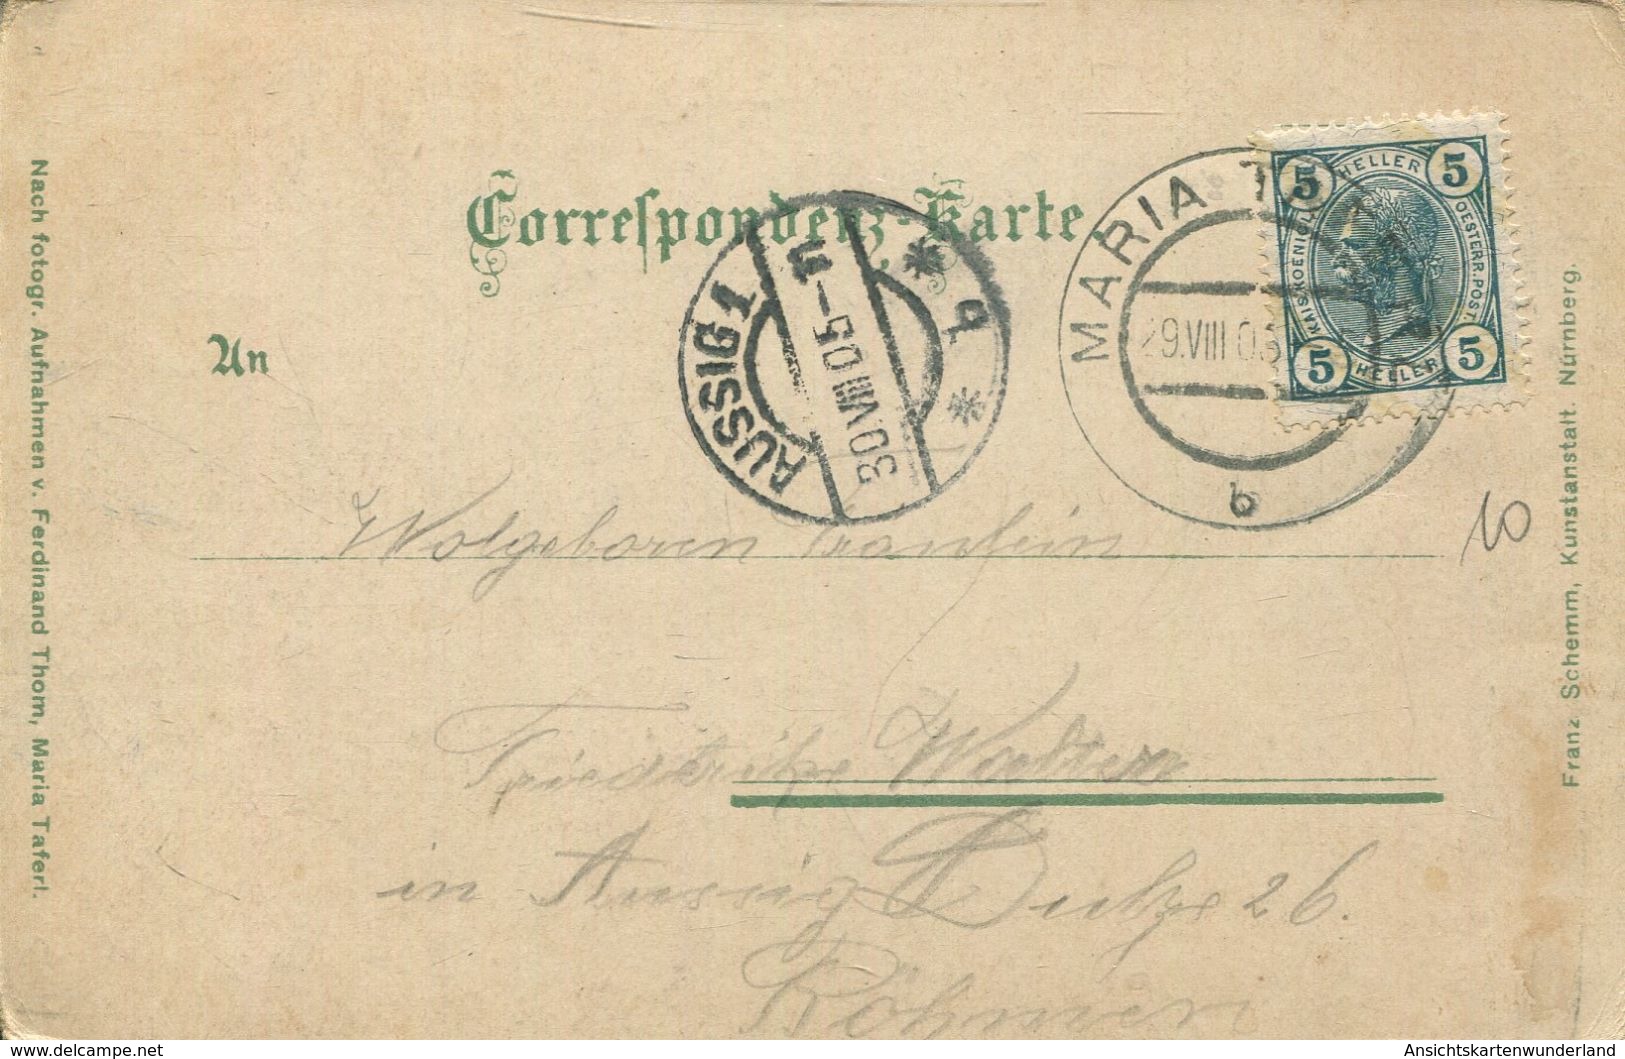 Correspondenz-Karte.
An
MARIA T
29.VIII 05
b
AUSSIG 1
30.VIII 05-11
* q *
5 HELLER 5
KAIS. KOENIGL.
OESTERR. POST.
5 HELLER 5
10
Wolgeboren Fraulein
Friederike Walter
in Aussig Dulze 26.
Böhmen
Nach fotogr. Aufnahmen v. Ferdinand Thom, Maria Taferl.
Franz Schemm, Kunstanstalt. Nürnberg.
www.delcampe.net
Ansichtskartenwunderland